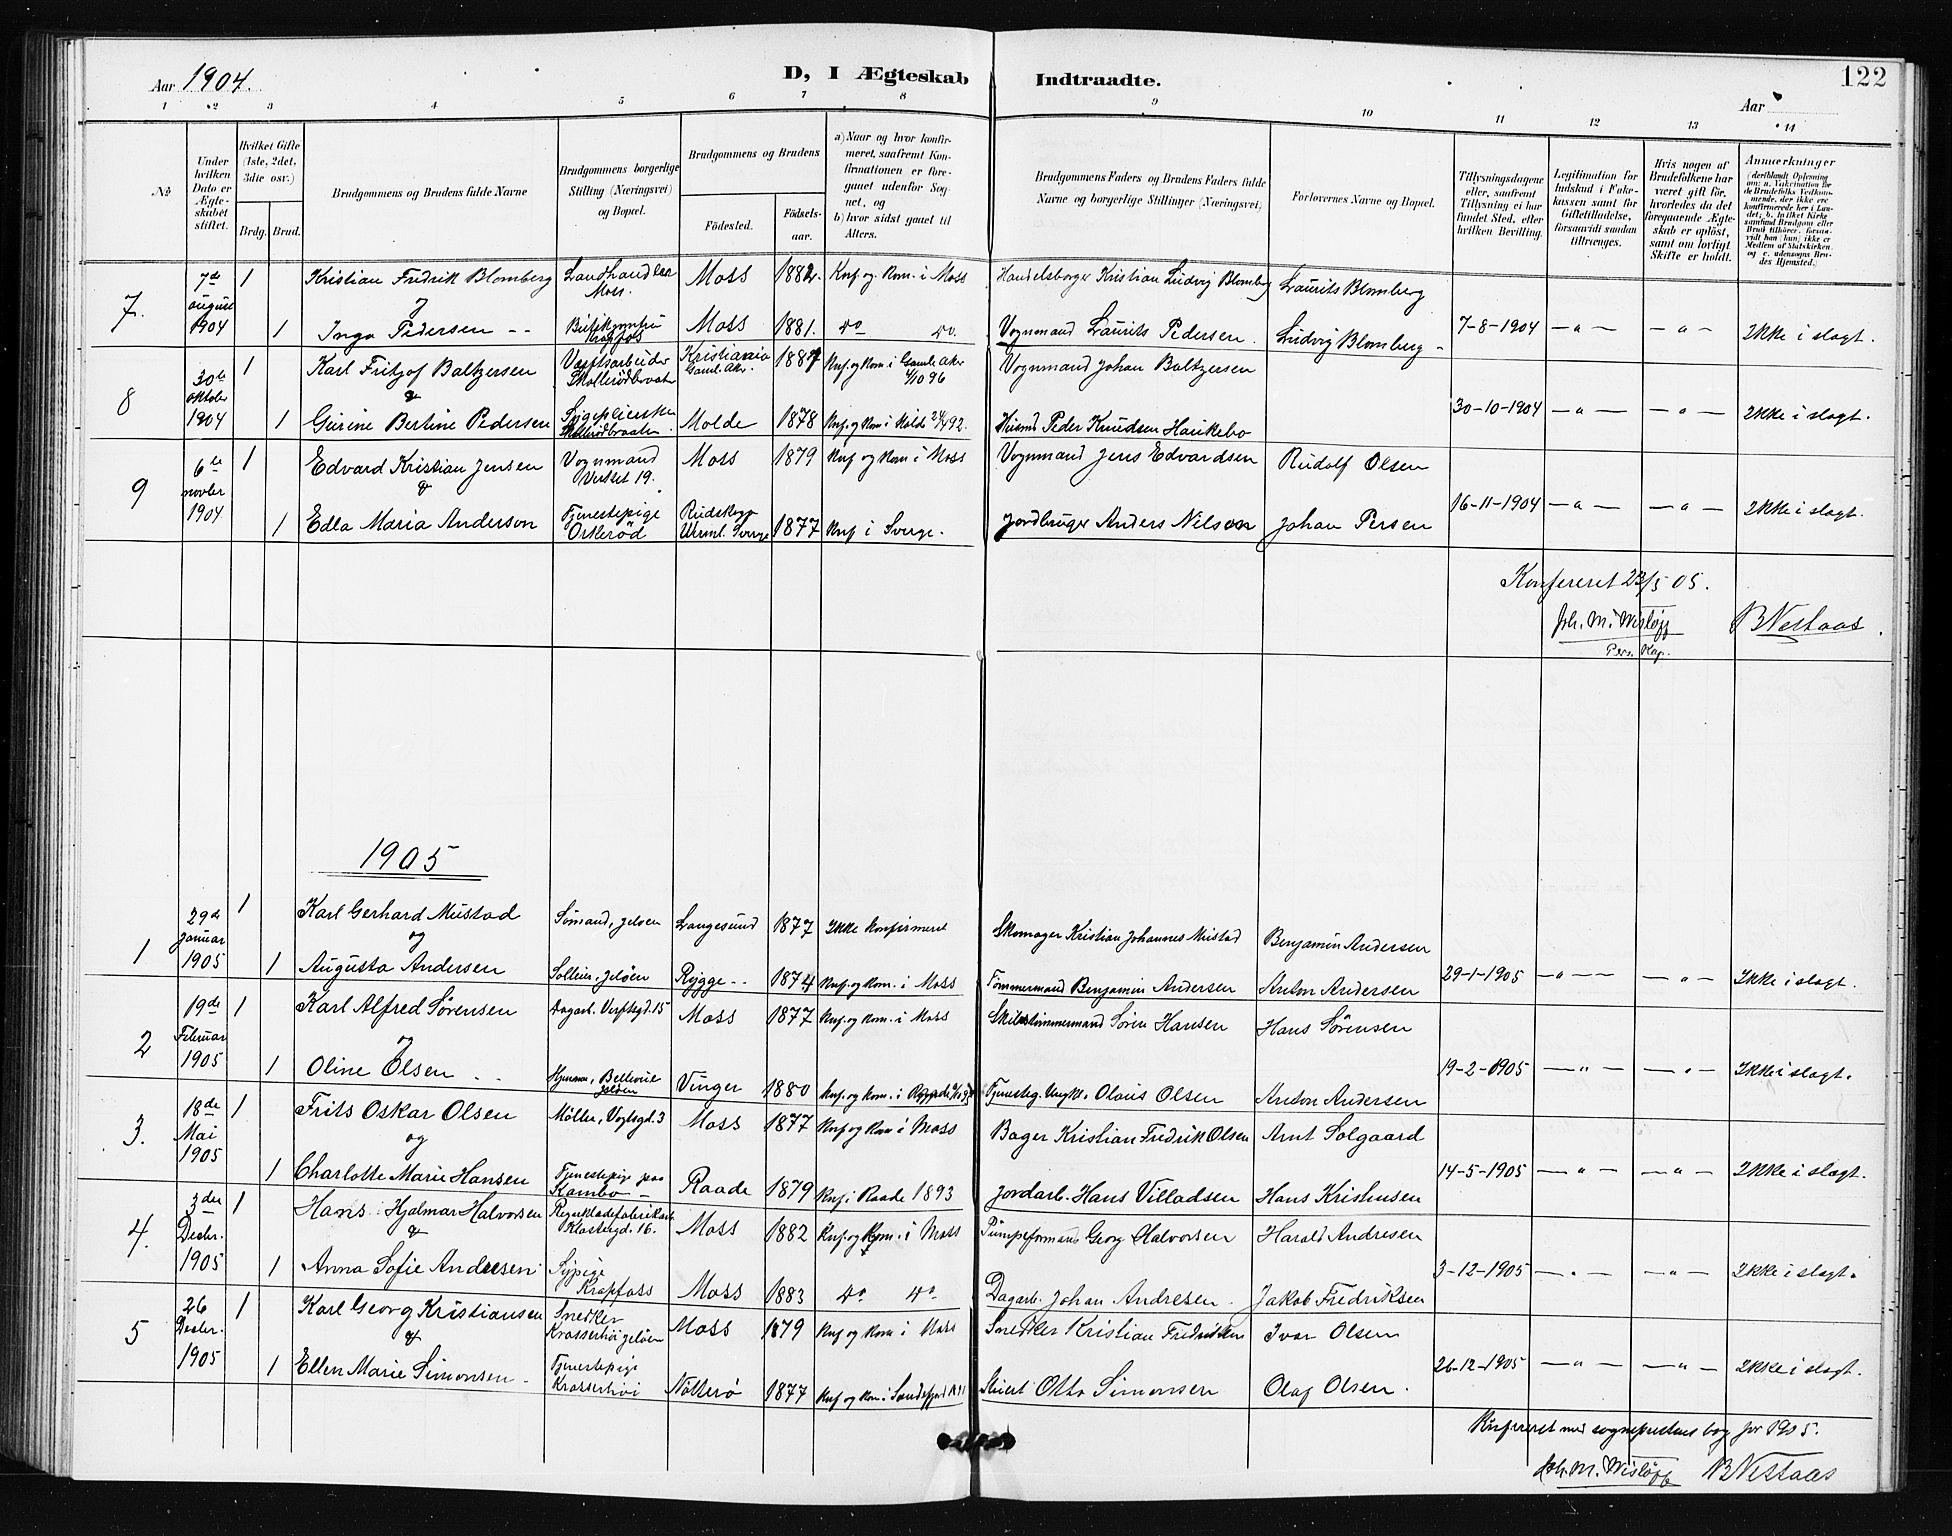 Aar 1904.
D, I Ægteskab Indtraadte.
122
Aar
1 2 3 4 5 6 7 8 9 10 11 12 13 14
No
Under hvilken Dato er Ægteskabet stiftet.
Hvilket Gifte (1ste, 2det, 3die osv.)
Brdg. Brud.
Brudgommens og Brudens fulde Navne
Brudgommens borgerlige Stilling (Næringsvei) og Bopæl.
Brudgommens og Brudens
Fødested.
Fødsels-aar.
a) Naar og hvor konfirmeret, saafremt Konfirmationen er foregaaet udenfor Sognet, og
b) hvor sidst gaaet til Alters.
Brudgommens Faders og Brudens Faders fulde Navne og borgerlige Stillinger (Næringsvei)
Forlovernes Navne og Bopæl.
Tillysningsdagene eller, saafremt Tillysning ei har fundet Sted, efter hvilken Bevilling.
Legitimation for Indskud i Enkekassen samt for Giftetilladelse, forsaavidt saadan tiltrænges.
Hvis nogen af Brudefolkene har været gift før, hvorledes da det foregaaende Ægteskab er opløst, samt om lovligt Skifte er holdt.
Anmærkninger
7. 7de august 1904
1 Kristian Fredrik Blomberg Landhandler Moss. Moss 1882. Knf. og. Kom. i Moss Handelsborger Kristian Ludvig Blomberg Lauritz Blomberg
og
1 Inga Pedersen -- Krapfos Moss 1881. do do. Vognmand Laurits Pedersen. Ludvig Blomberg - 7-8-1904 — " — — " — Ikke i slægt.
8 30te oktober 1904
1 Karl Fritjof Baltzersen Værftsarbeider Skollerødbraaten Kristiania Gaml. Aker. 1887 Knf. og Kom i Gamle Aker 4/10 96 Vognmand Johan Baltzersen
&
1 Gurine Bertine Pedersen Sygepleierske Skollerødbraaten Molde 1878 Knf. og Kom i Molde 24/4 92. Husmd Peder Knudsen Haukebo 30-10-1904 — " — — " — Ikke i slægt.
9 6te novber 1904
1 Edvard Kristian Jensen Vognmand Verket 19. Moss 1879 Knf og Kom i Moss Vognmand Jens Edvardsen Rudolf Olsen
&
1 Edla Maria Anderson Tjenestepige Orkerød Rudskoga Verml. Sverge 1877 Knf i Sverge. Jordbruger Anders Nilsson Johan Persen 16-11-1904 — " — — " — Ikke i slægt.
Konfereret 23/5 05.
Joh. M. Wisløff
Pers. Kap.
B Nestaas.
1905
1 29de Januar 1905
1 Karl Gerhard Mustad Sømand, Jeløen Langesund 1877 Ikke konfirmeret Skomager Kristian Johannes Mustad Benjamin Andersen
og
1 Augusta Andersen Solleier, Jeløen Rygge -- 1874 Knf. og Kom. i Moss Tømmermand Benjamin Andersen Anton Andersen 29-1-1905 — " — — " — Ikke i slægt.
2 19de Februar 1905
1 Karl Alfred Sørensen Dagarb. Verftsgd. 15 Moss 1877 Knf. og Kom. i Moss Skibstømmermand Søren Hansen Hans Sørensen
og
1 Oline Olsen -- Hjemme, Bellevue Jeløen Vinger 1880 Knf. og Kom. i Olaus Olsen Anton Andersen 19-2-1905 — " — — " — Ikke i slægt.
3. 18de Mai 1905
1 Frits Oskar Olsen Møller, Vogtsgd. 3 Moss 1877 Knf og Kom i Moss Bager Kristian Fredrik Olsen Arnt Solgaard
og
1 Charlotte Marie Hansen Tjenestepige paa Kambo - Raade 1879 Knf i Raade 1893 Jordarb. Hans Villadsen Hans Kristensen 14-5-1905 — " — — " — Ikke i slægt.
4. 3die Decbr. 1905
1 Hans Hjalmar Halvorsen Klostergd. 16. Moss 1882 Knf. og Kom. i Moss Pumpeformand Georg Halvorsen Harald Andresen
&
1 Anna Sofie Andresen Sypige Krapfoss Moss 1883 do do. Dagarb. Johan Andresen. Jakob Fredriksen 3-12-1905 — " — — " — Ikke i slægt.
5 26 Decbr. 1905
1 Karl Georg Kristiansen Snedker Krossertøi Jeløen Moss 1879 Knf og Kom i Moss Snedker Kristian Fredriksen Ivar Olsen
&
1 Ellen Marie Simonsen - Tjenestepige Krossertøi Nøtterø 1877 Knf og Kom. i Sandefjord Otto Simonsen Olaf Olsen. 26-12-1905 — " — — " — Ikke i slægt.
Konfereret med sogneprestens bog for 1905.
Joh. M. Wisløff B Nestaas